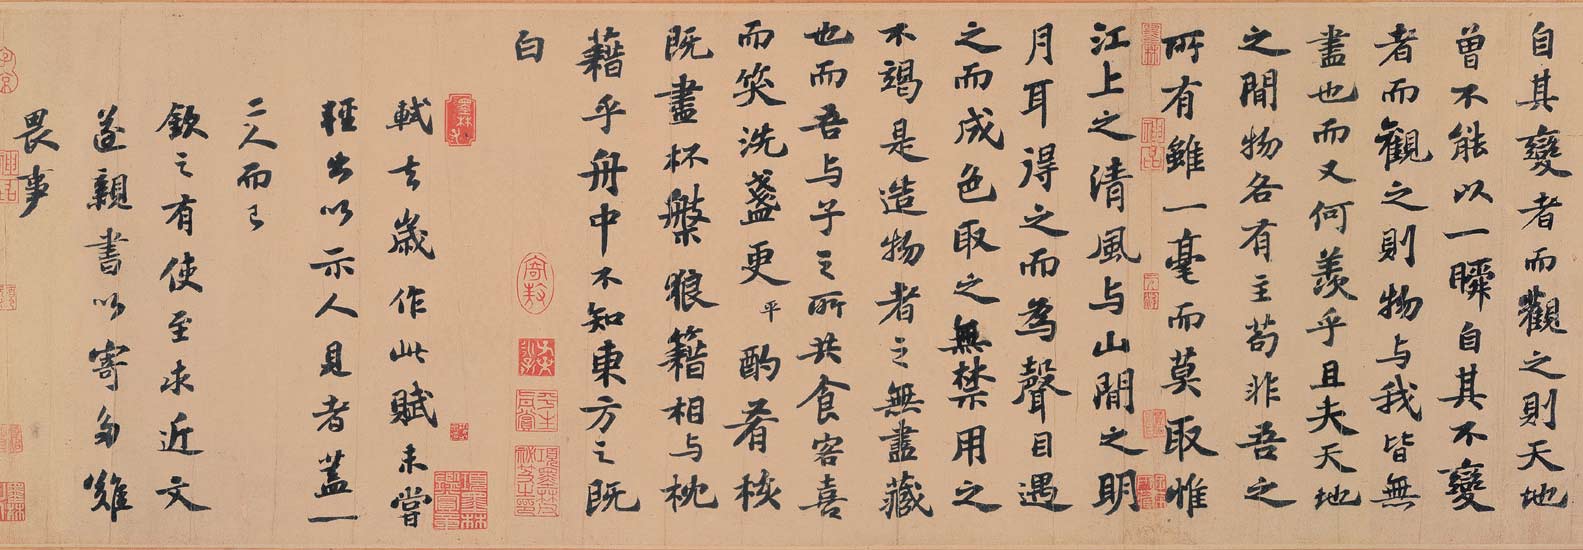 自其變者而觀之則天地
曾不能以一瞬自其不變
者而觀之則物与我皆無
盡也而又何羨乎且夫天地
之閒物各有主苟非吾之
所有雖一毫而莫取惟
江上之清風与山閒之明
月耳得之而為聲目遇
之而成色取之無禁用之
不竭是造物者之無盡藏
也而吾与子之所共食客喜
而笑洗盞更平酌肴核
既盡杯盤狼籍相与枕
藉乎舟中不知東方之既
白
軾去歲作此賦未嘗
輕出以示人見者蓋一
二人而已
欽之有使至求近文
遂親書以寄多難
畏事